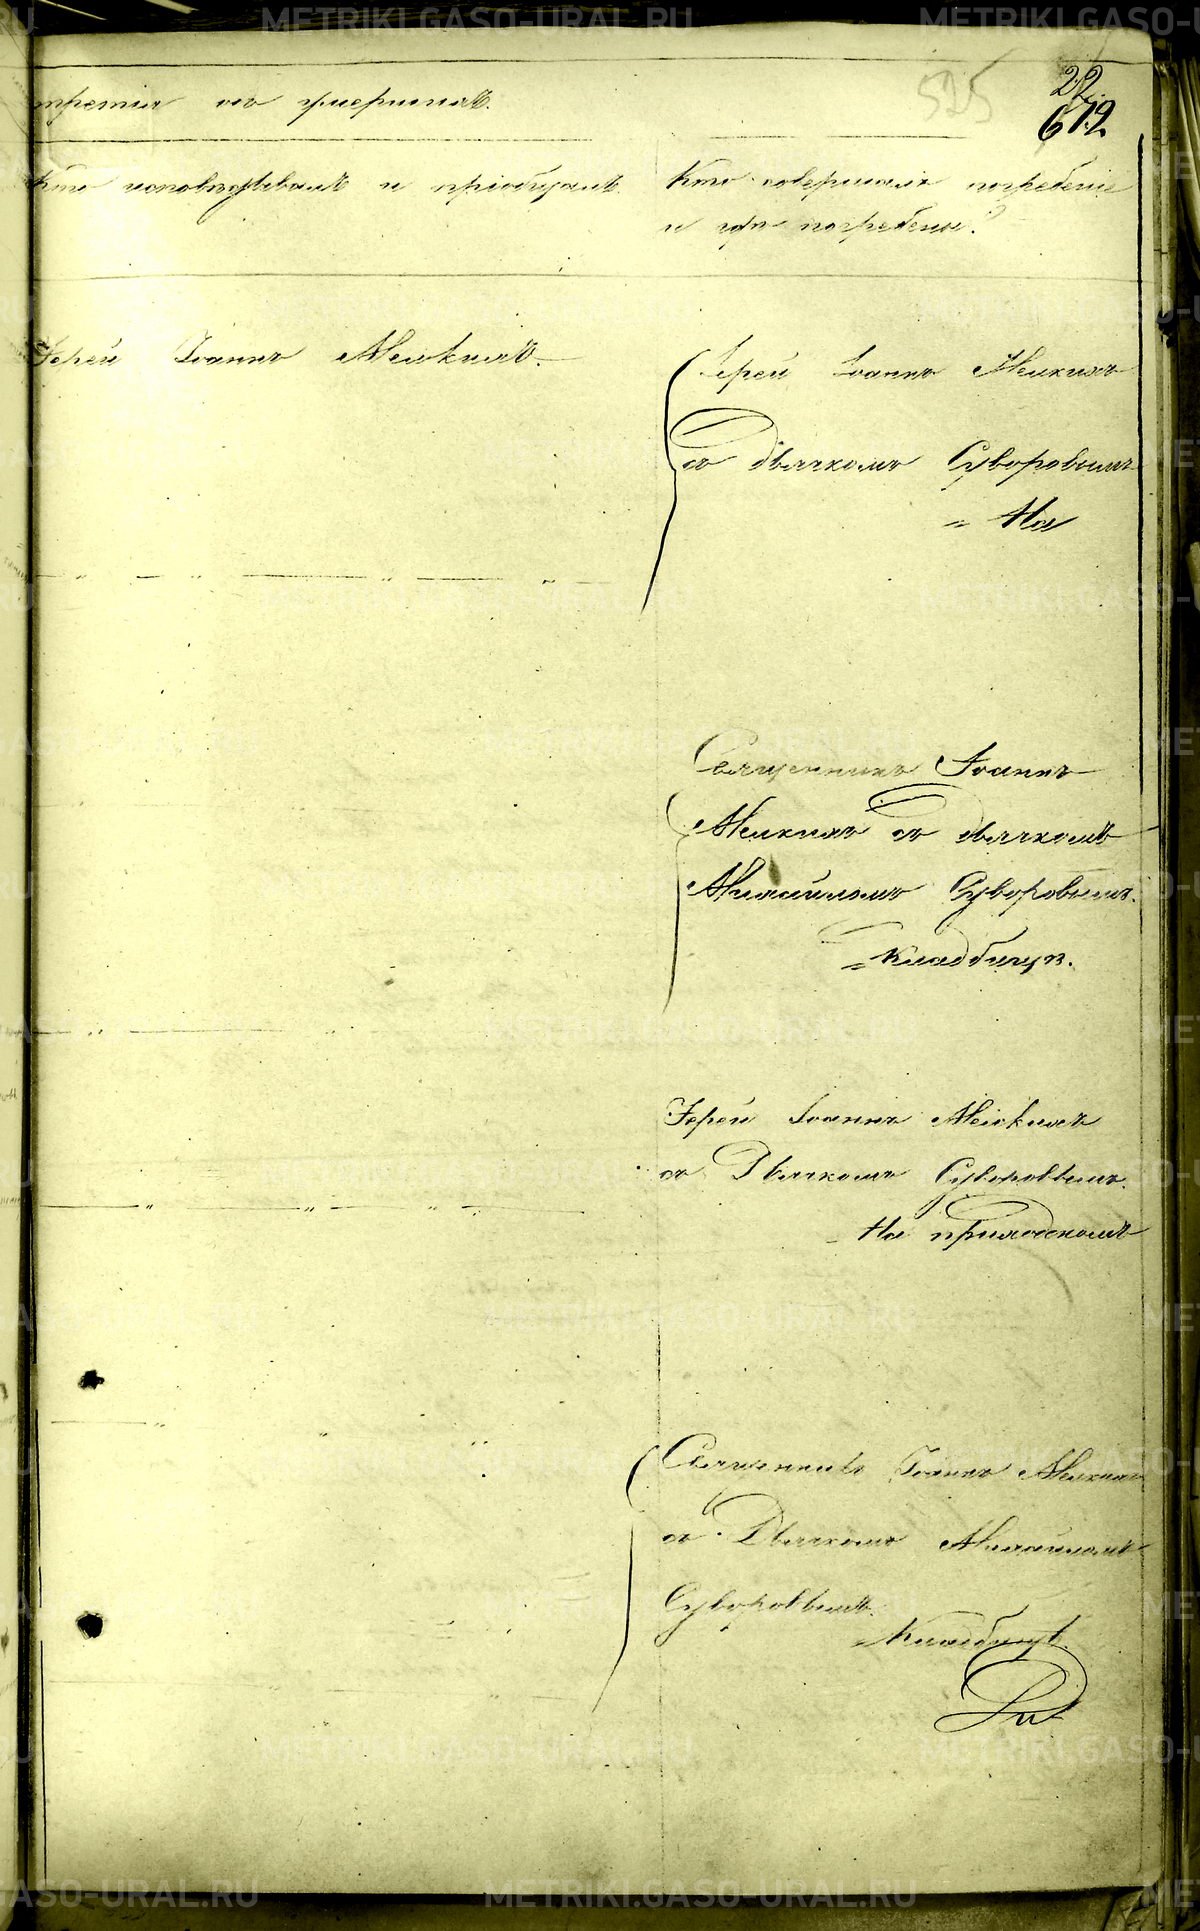 525
22
612
третия объ умершихъ.
Кто исповѣдывалъ и пріобщалъ
Кто совершалъ погребеніе
и гдѣ погребены?
Іерей Іоаннъ Мелкихъ.
Іерей Іоаннъ Мелкихъ
съ дьячкомъ Суворовымъ
На
Священникъ Іоаннъ
Мелкихъ съ дьячкомъ
Михайломъ Суворовымъ.
кладбищѣ.
Іерей Іоаннъ Мелкихъ
съ Дьячкомъ Суворовымъ.
На приходскомъ
Священникъ Іоаннъ Мелкихъ
съ Дьячкомъ Михайломъ
Суворовымъ.
Кладбищѣ.
METRIKI.GASO-URAL.RU